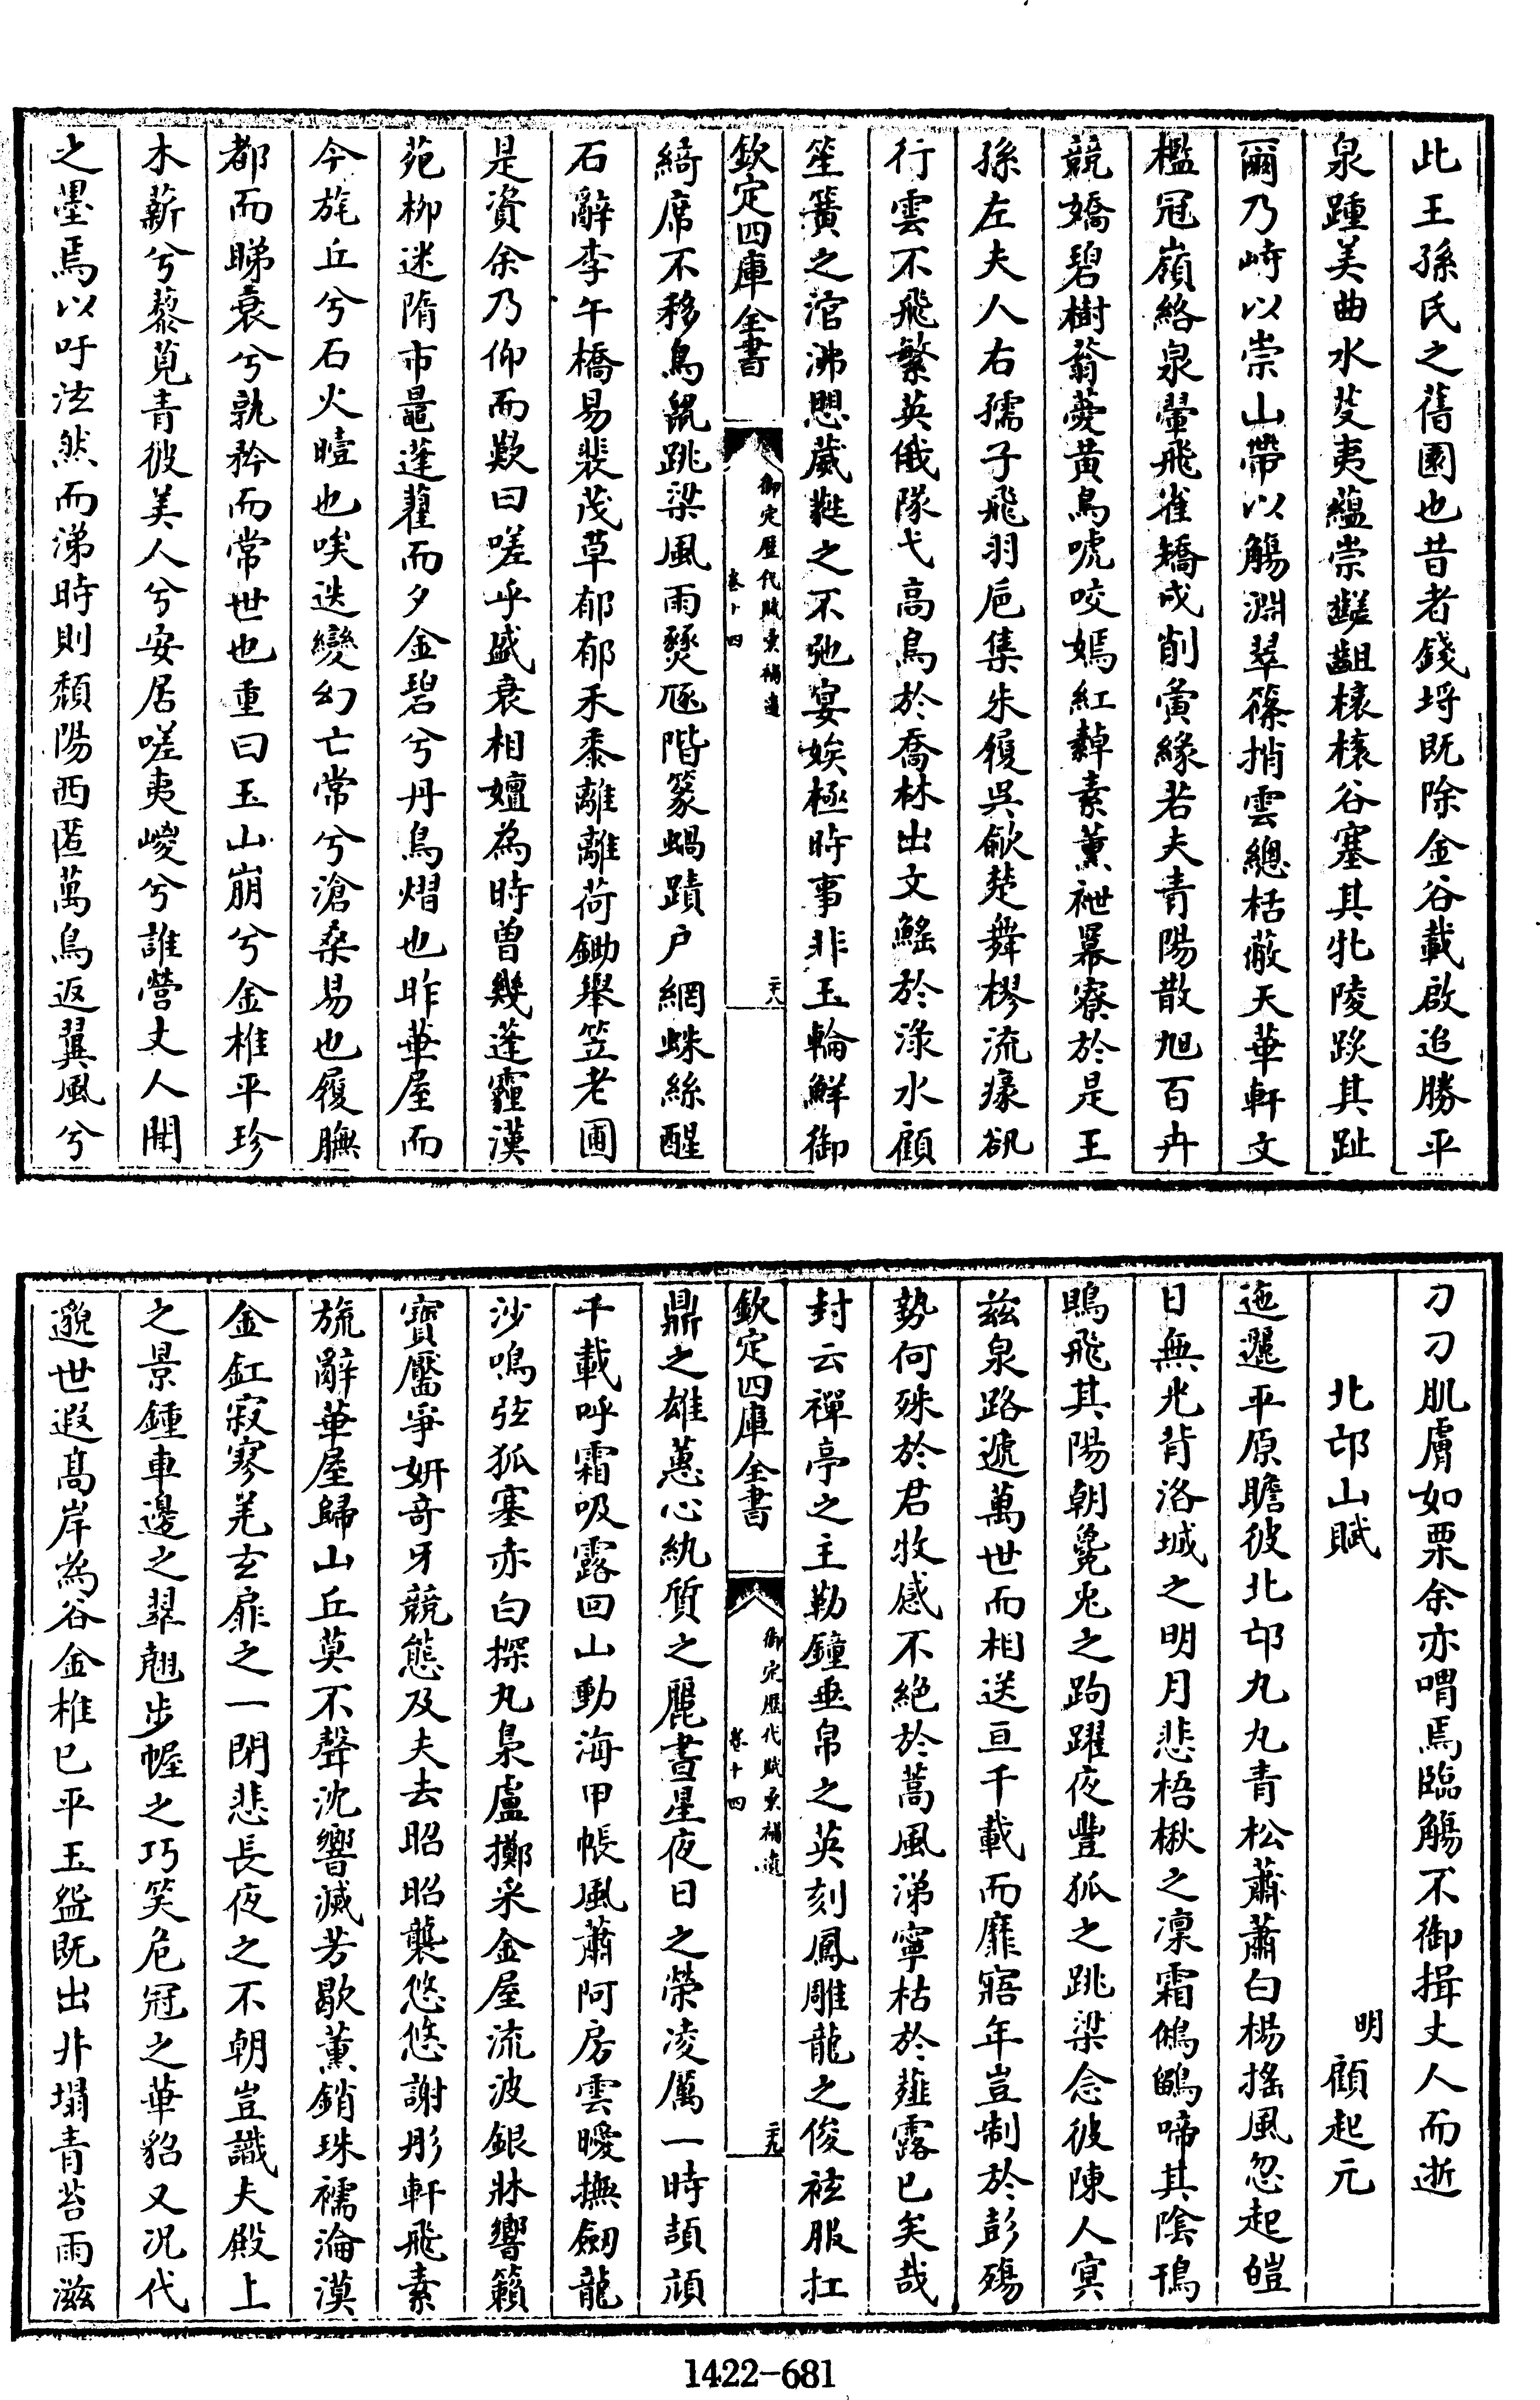 此王孫氏之舊園也昔者錢埒既除金谷載啟追勝平
泉踵美曲水芟夷蘊崇齹齟榱榱谷塞其牝陵踐其趾
爾乃峙以崇山帶以觴淵翠篠捎雲總栝蔽天華軒文
檻冠嶺絡泉翬飛雀矯成削夤緣若夫青陽散旭百卉
競嬌碧樹蓊薆黃鳥唬咬嫣紅嚲素薰袣冪寮於是王
孫左夫人右孺子飛羽巵集朱履吳歈楚舞樛流瘝
行雲不飛繁英俄隊弋高鳥於喬林出文鰩於淥水顧
笙簧之涫沸愳葳蕤之不弛宴娭極時事非玉輪鮮御
欽定四庫全書
御定歷代賦彙補遺
卷十四
二十八
綺席不移鳥鼠跳梁風雨燹阸階篆蝸蹟户網蛛絲醒
石辭李午橋易裴茂草郁郁禾黍離離荷鋤舉笠老圃
是資余乃仰而歎曰嗟乎盛衰相嬗為時曽幾蓬霾漢
苑栁迷隋市鼂蓬藋而夕金碧兮丹鳥熠也昨華屋而
今旄丘兮石火曀也唉迭變幻亡常兮滄桑易也履膴
都而睇衰兮孰矜而常世也重曰玉山崩兮金椎平珍
木薪兮藜莧青彼美人兮安居嗟夷峻兮誰營丈人聞
之墨焉以吁泫然而涕時則頹陽西匿萬鳥返翼風兮
刁刁肌膚如栗余亦喟焉臨觴不御揖丈人而逝
北邙山賦
明
顧起元
迤邐平原瞻彼北邙九九青松蕭蕭白楊搖風忽起皚
日無光背洛城之明月悲梧楸之凛霜鵂鶹啼其陰鴇
鴡飛其陽朝毚兎之跔躍夜豐狐之跳梁念彼陳人寘
兹泉路遞萬世而相送亘千載而靡寤年豈制於彭殤
勢何殊於君牧感不絶於蒿風涕寧枯於薤露已矣哉
封云禪亭之主勒鐘垂帛之英刻鳳雕龍之俊袨服扛
欽定四庫全書
御定歷代賦彙補遺
卷十四
二十九
鼎之雄蕙心紈質之麗晝星夜日之榮凌厲一時頡頏
千載呼霜吸露回山動海甲帳風蕭阿房雲曖撫劒龍
沙鳴弦狐塞赤白探丸梟盧擲采金屋流波銀牀響籟
寶靨爭妍竒牙競態及夫去昭昭襲悠悠謝彤軒飛素
旐辭華屋歸山丘莫不聲沈響滅芳歇薰銷珠襦淪漠
金釭寂寥羌玄扉之一閉悲長夜之不朝豈識夫殿上
之景鍾車邊之翠翹步幄之巧笑危冠之華貂又况代
邈世遐髙岸為谷金椎已平玉盌既出非塌青苔雨滋
1422-681